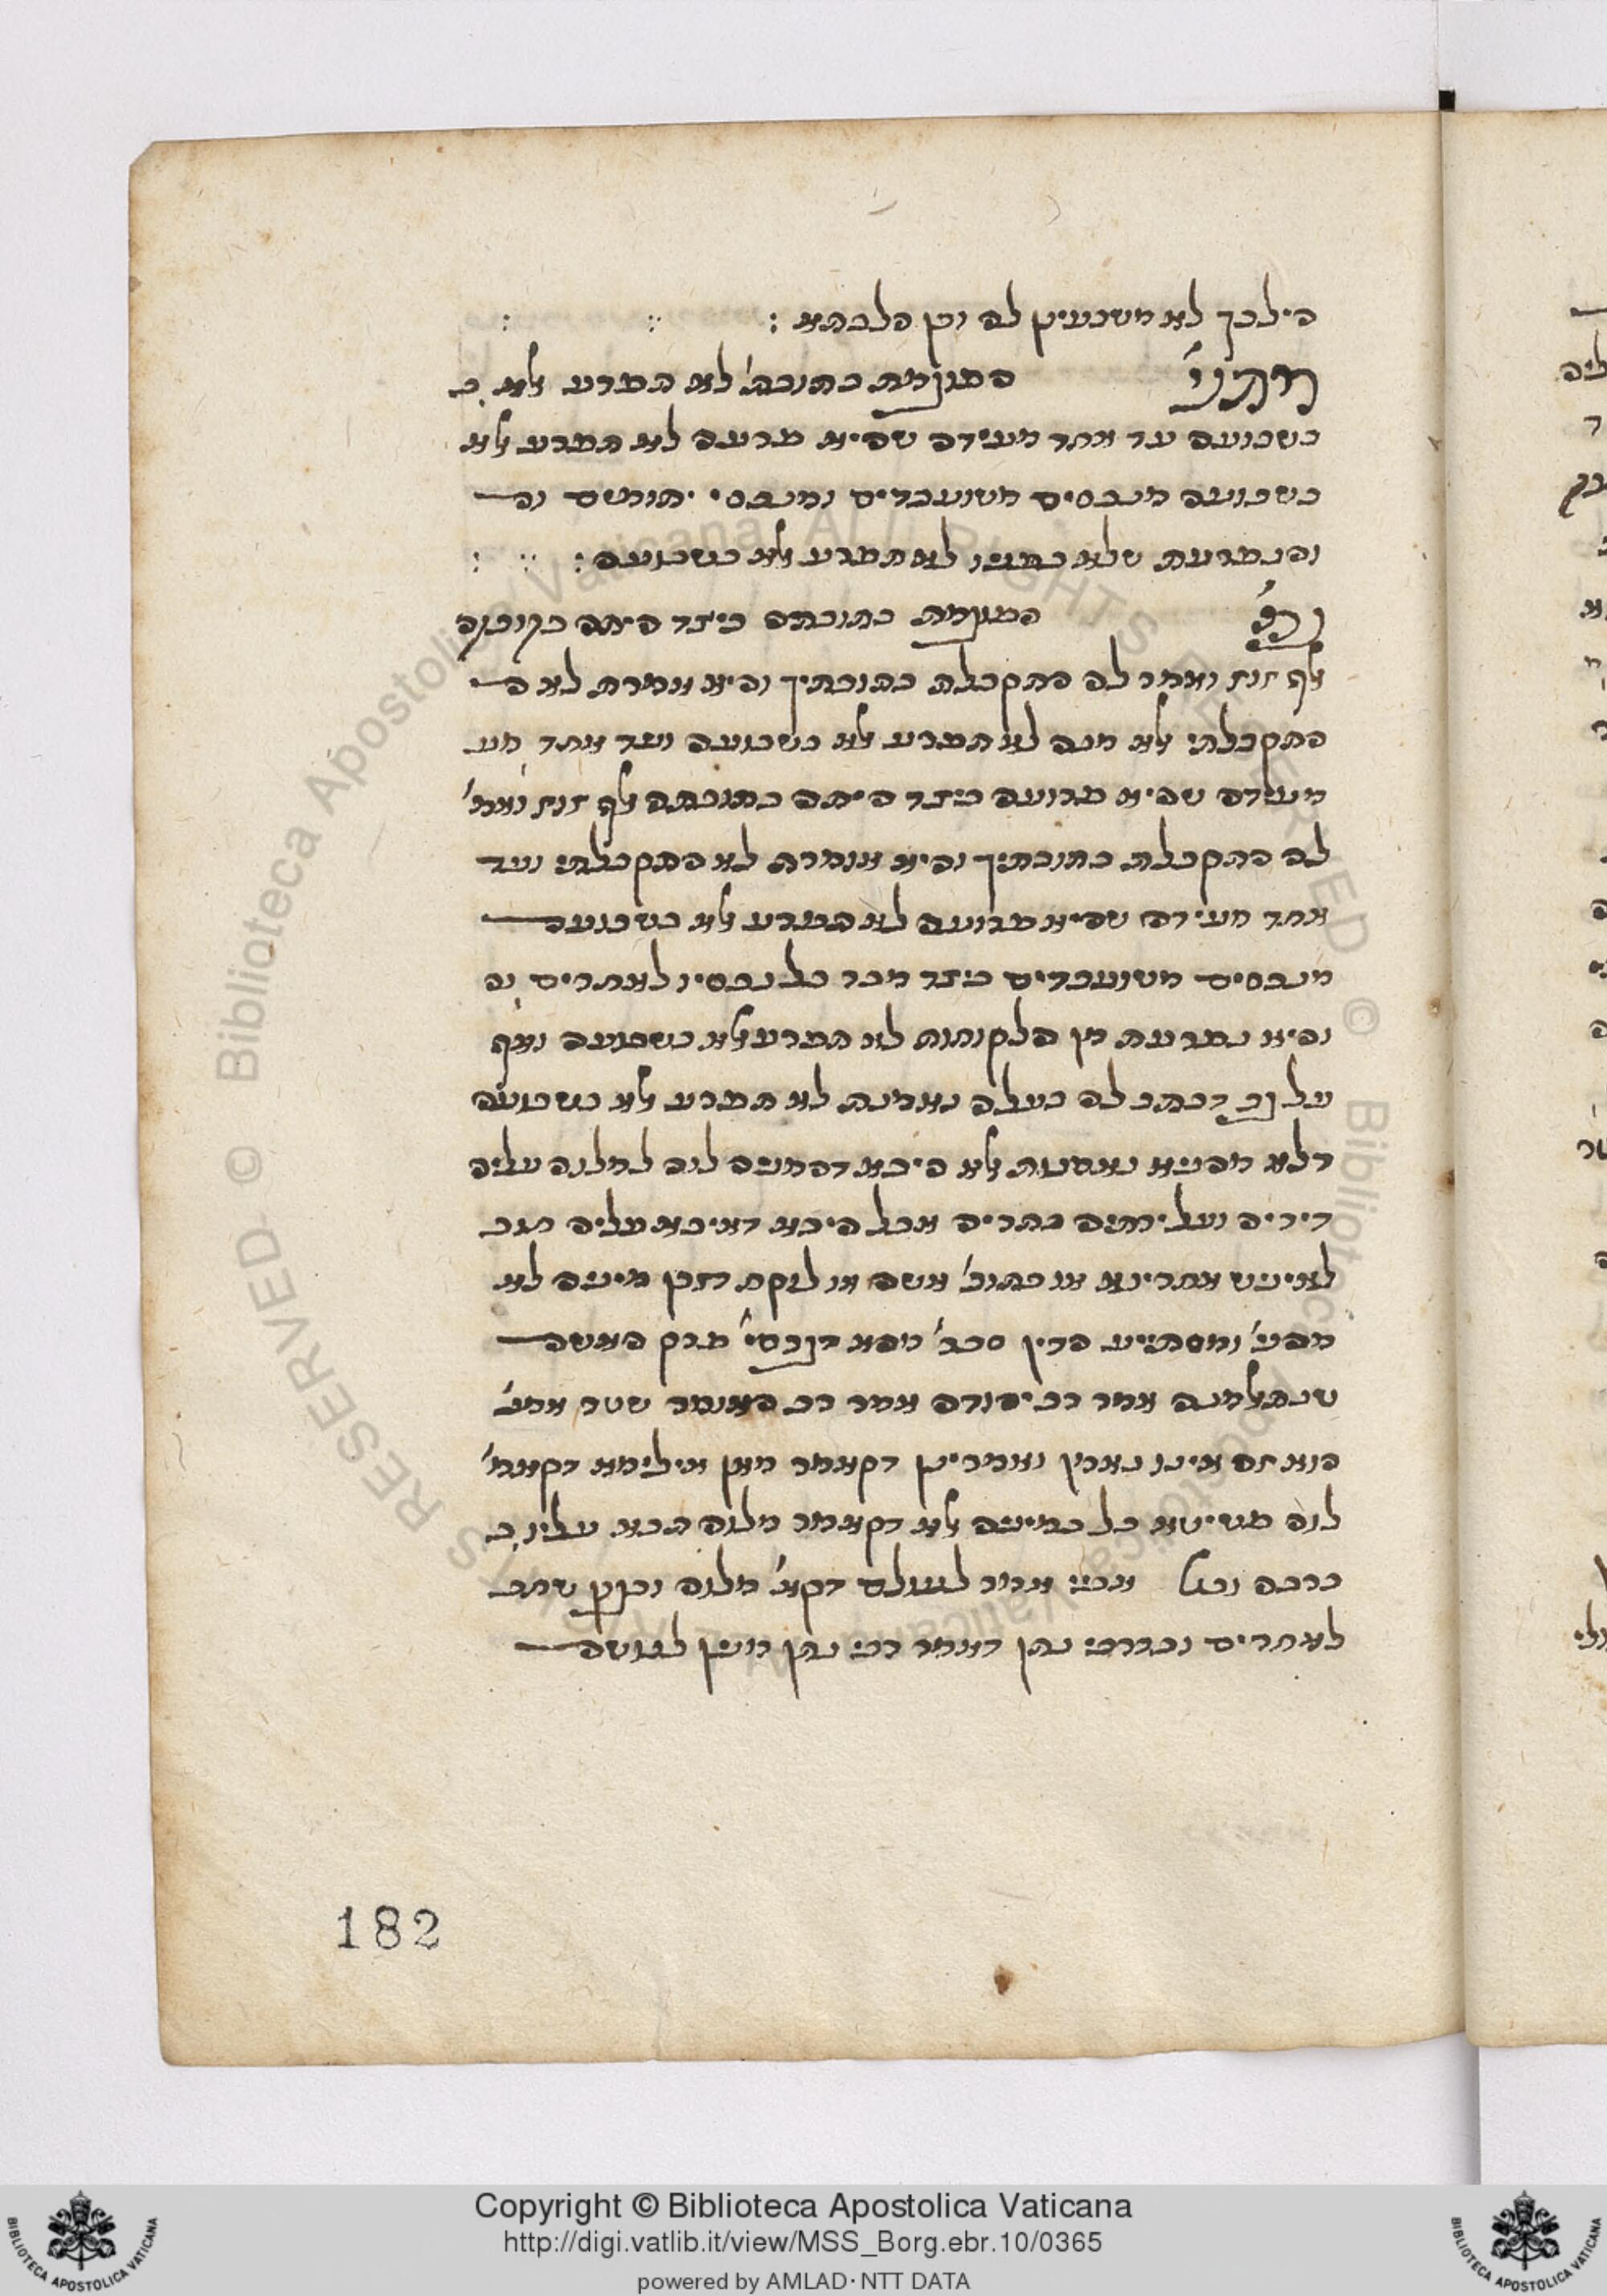 הילכך לא משבעינן לה וכן הלכתא :
מתני' הפוגמת כתובת' לא תפרע אלא ב
בשבועה עד אחד מעידה שהיא פרועה לא תפרע אלא
בשבועה מנכסים משועבדים ומנכסי יתומים וה
והנפרעת שלא בפניו לא תפרע אלא בשבועה :
הפוגמת כתובתה כיצד היתה כתובתה
אלף זוז ואמר לה התקבלת כתובתיך והיא אומרת לא ה
התקבלתי אלא מנה לא תפרע אלא בשבועה ועד אחד מע
מעידה שהיא פרועה כיצד היתה כתובתה אלף זוז ואמ'
לה התקבלת כתובתיך והיא אומרת לא התקבלתי ועד
אחד מעידה שהיא פרועה לא תפרע אלא בשבועה
מנכסים משועבדים כיצד מכר כל נכסיו לאחרים וה
והיא נפרעת מן הלקוחות לא תפרע אלא בשבועה ואף
על גב דכתב לה בעלה נאמנת לא תפרע אלא בשבועה
דלא מהניא נאמנות אלא היכא דהמניה לוה למלוה עליה
דידיה ועל ירתיה בתריה אבל היכא דאיכא עליה חוב
לאיניש אחרינא או כתוב' אשה או לוקח דזבן מיניה לא
מהני' ומסתייע הדין סבר' מהא דגרסי' פרק האשה
שנתאלמנה אמר רב יהודה אמר רב האומר שטר אמנ'
הוא זה אינו נאמן ואמרינן דקאמר מאן אילימא דקאמ'
לוה פשיטא כל כמיניה אלא דקאמר מלוה תבא עליו ב
ברכה וכול אביי אמר לעולם דקא' מלוה וכגון שחב
לאחרים וכדרבי נתן דאמר רבי נתן מנין לנושה
182
Copyright © Biblioteca Apostolica Vaticana
http://digi.vatlib.it/view/MSS_Borg.ebr.10/0365
powered by AMLAD·NTT DATA